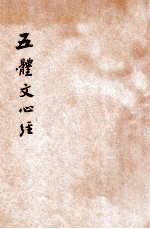 五體文心經